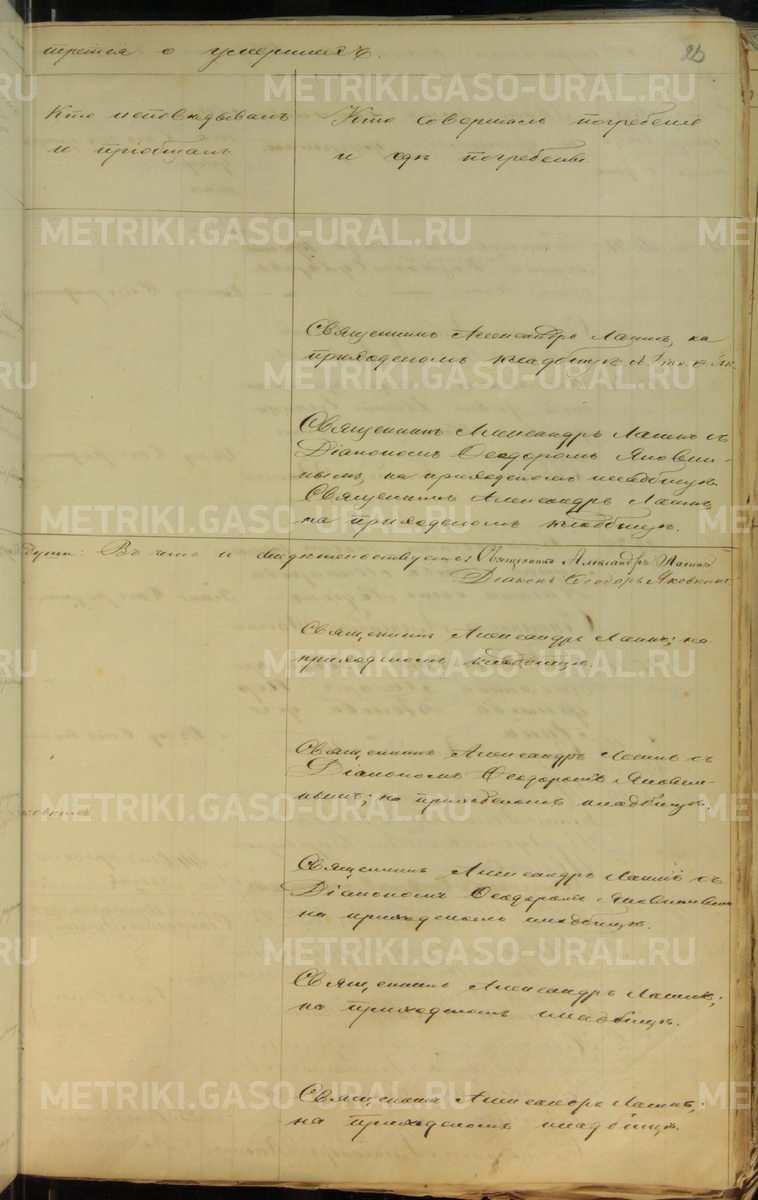 третья о умершихъ.
25
Кто исповѣдывалъ
и пріобщалъ.
Кто совершалъ погребеніе
и гдѣ погребены.
METRIKI.GASO-URAL.RU
Священникъ Александръ Лапинъ, на
приходскомъ кладбищѣ
Священникъ Александръ Лапинъ съ
Діакономъ Ѳеодоромъ Яковки-
нымъ, на приходскомъ кладбищѣ.
Священникъ Александръ Лапинъ,
на приходскомъ кладбищѣ.
души: Въ чемъ и свидѣтельствуемъ: Священникъ Александръ Лапинъ
Діаконъ Ѳеодоръ Яковкинъ.
Священникъ Александръ Лапинъ; на
приходскомъ кладбищѣ.
Священникъ Александръ Лапинъ съ
Діакономъ Ѳеодоромъ Яковки-
нымъ; на приходскомъ кладбищѣ.
Священникъ Александръ Лапинъ съ
Діакономъ Ѳеодоромъ Яковкинымъ
на приходскомъ кладбищѣ.
Священникъ Александръ Лапинъ;
на приходскомъ кладбищѣ.
Священникъ Александръ Лапинъ;
на приходскомъ кладбищѣ.